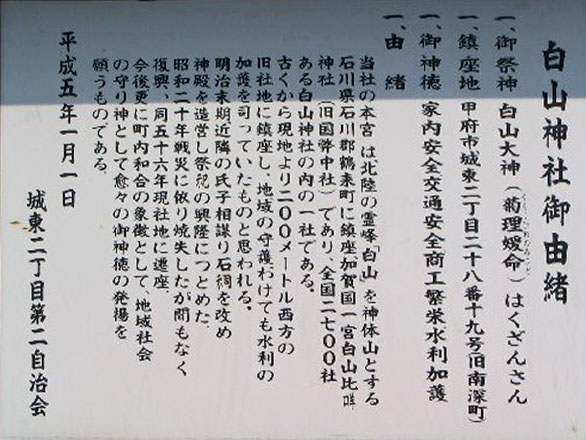 白山神社御由緒
一、御祭神 白山大神（菊理媛命）はくざんさん
一、鎮座地 甲府市城東二丁目二十八番十九号（旧南深町）
一、御神徳 家内安全交通安全商工繁栄水利加護
一、由緒
当社の本宮は北陸の霊峰「白山」を神体山とする
石川県石川郡鶴来町に鎮座加賀国一宮白山比咩
神社（旧国弊中社）であり、全国二七〇〇社
ある白山神社の内の一社である。
古くから現地より二〇〇メートル西方の
旧社地に鎮座し、地域の守護わけても水利の
加護を司っていたものと思われる。
明治末期近隣の氏子相謀り石祠を改め
神殿を造営し祭祝の興隆につとめた。
昭和二十年戦災に依り焼失したが間もなく
復興、同五十六年現社地に遷座、
今後更に町内和合の象徴として、地域社会
の守り神として愈々の御神徳の発揚を
願うものである。
平成五年一月一日
城東二丁目第二自治会